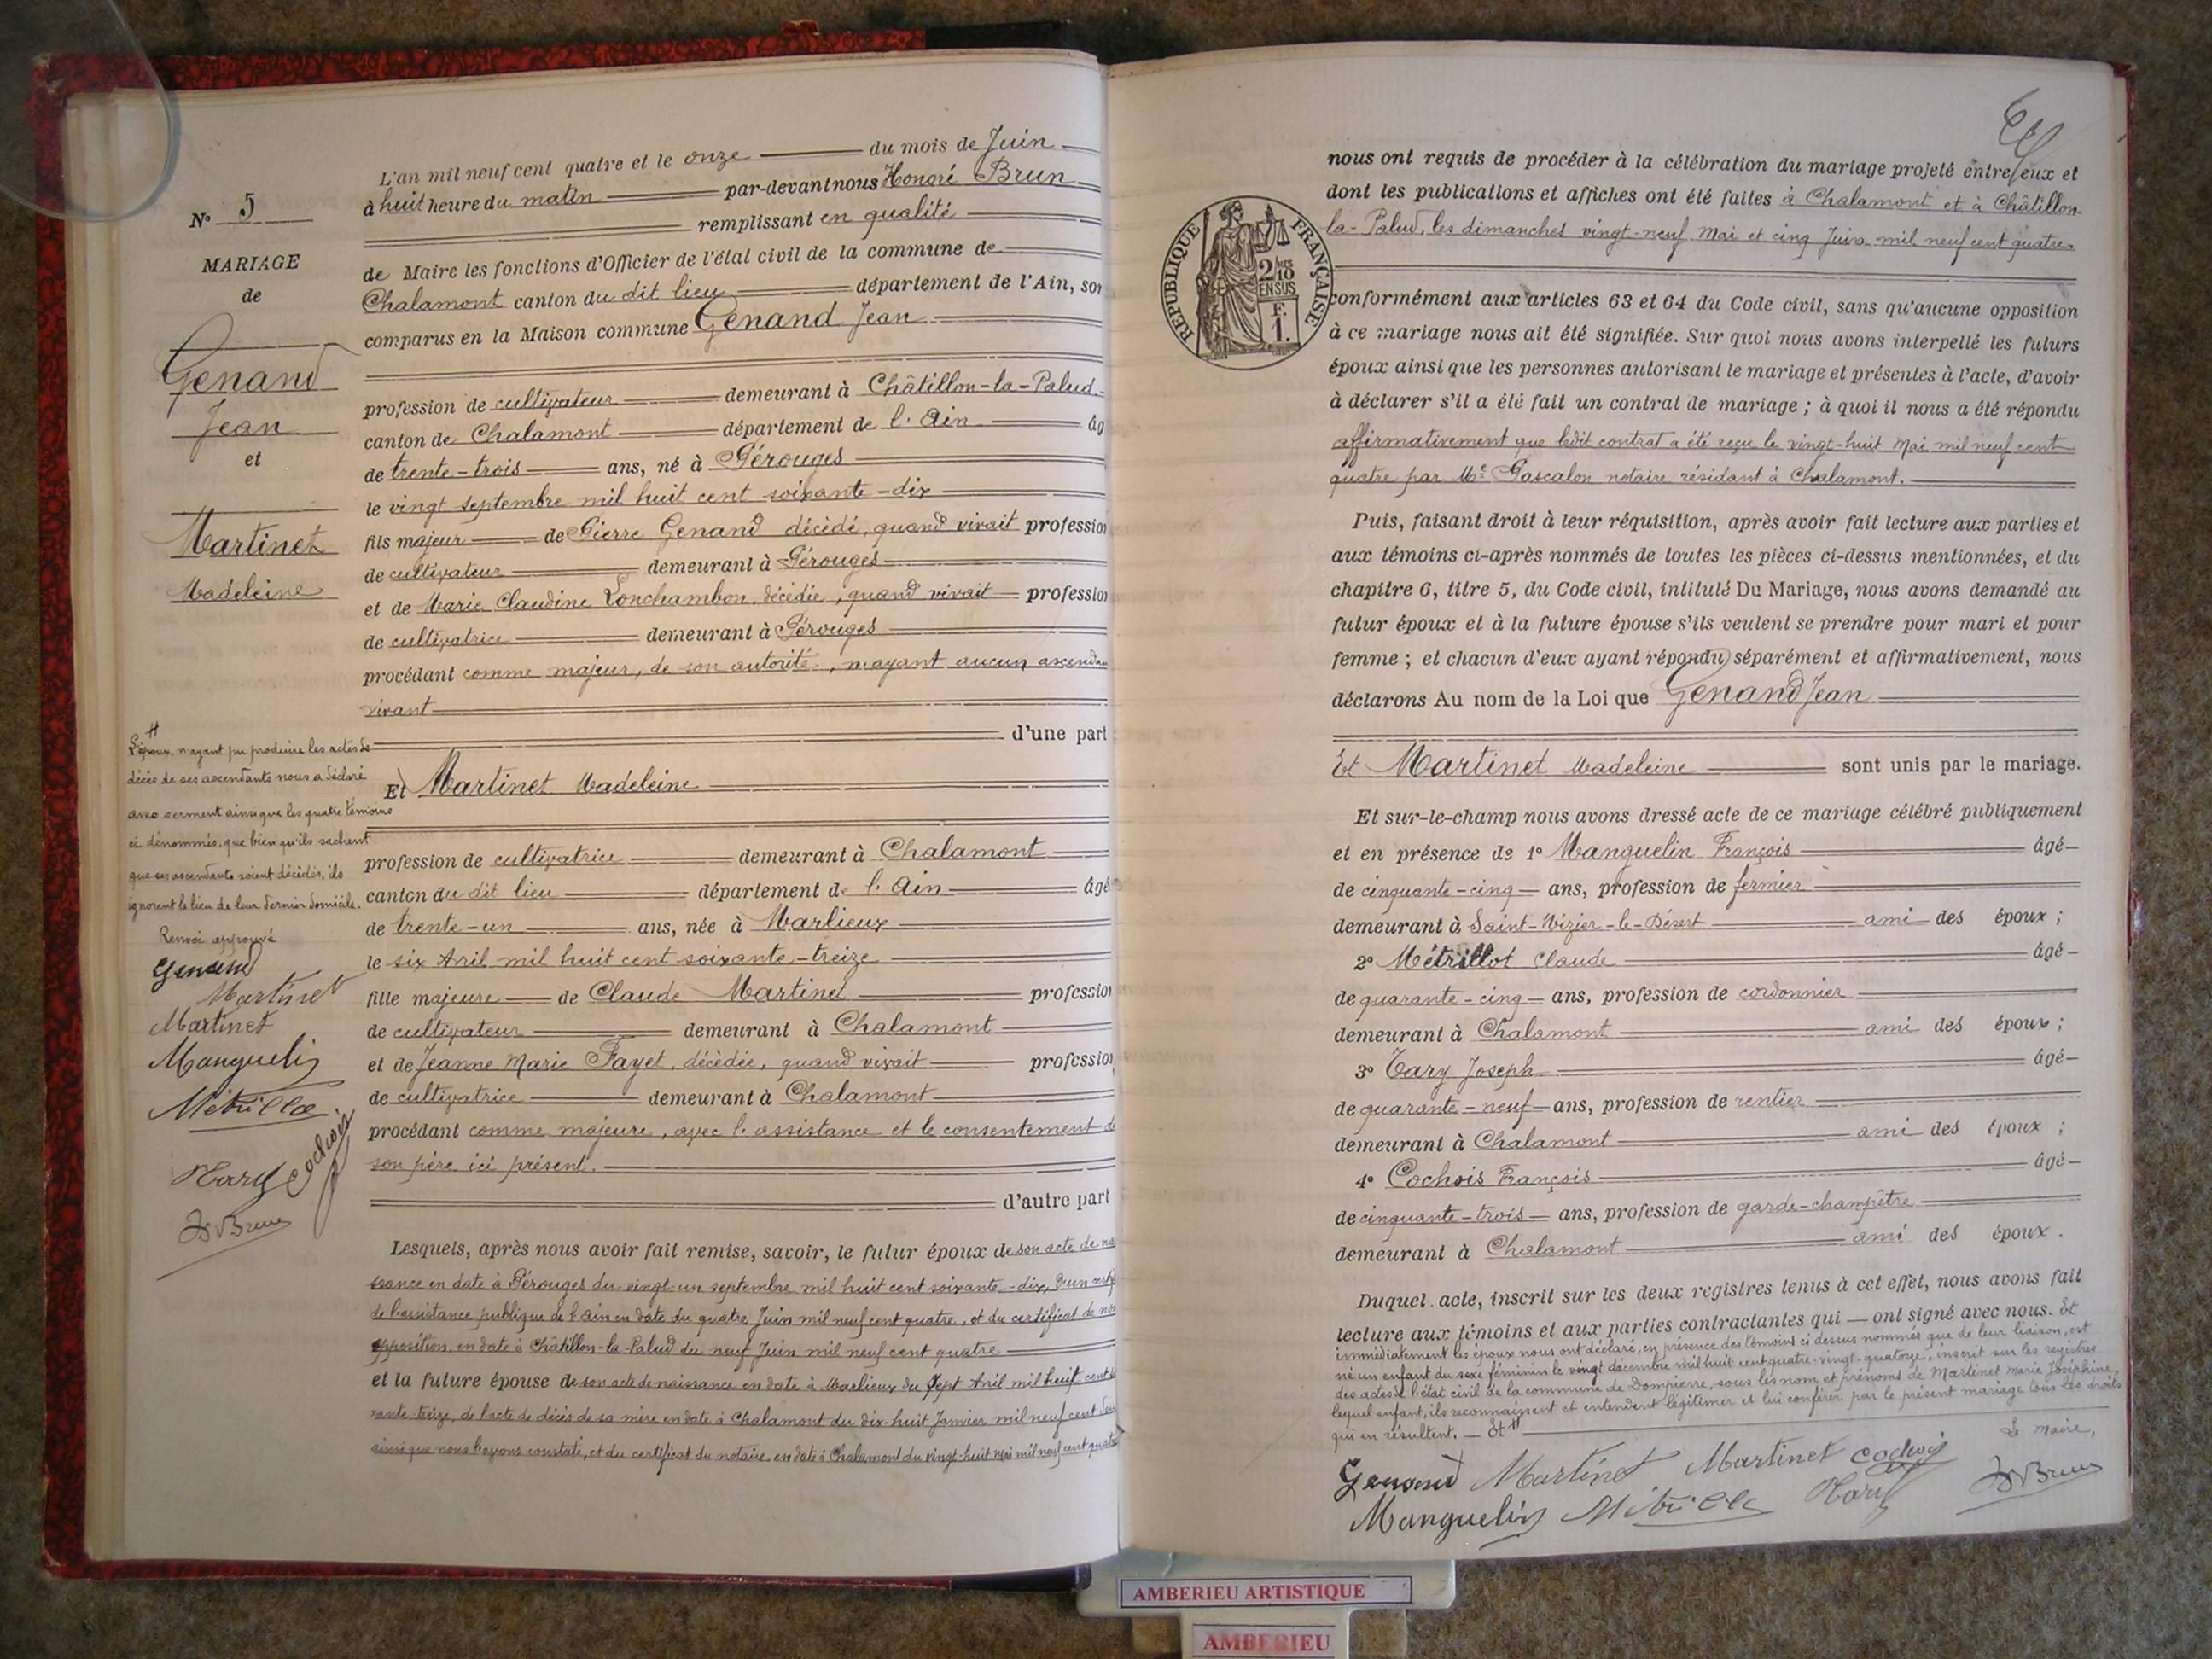 N° 5
MARIAGE
de
Genand
Jean
et
Martinet
Madeleine
L'an mil neuf cent quatre et le onze du mois de Juin
à huit heure du matin par-devant nous Honoré Brun
remplissant en qualité
de Maire les fonctions d'Officier de l'état civil de la commune de
Chalamont canton du dit lieu département de l'Ain, son
comparus en la Maison commune Genand Jean
profession de cultivateur demeurant à Châtillon-la-Palud
canton de Chalamont département de l'Ain âg
de trente-trois ans, né à Pérouges
le vingt septembre mil huit cent soixante-dix
fils majeur de Pierre Genand décédé, quand vivait profession
de cultivateur demeurant à Pérouges
et de Marie Claudine Lonchambon, décédée, quand vivait profession
de cultivatrice demeurant à Pérouges
procédant comme majeur, de son autorité, n'ayant aucun ascendan
vivant
d'une part
Et Martinet Madeleine
profession de cultivatrice demeurant à Chalamont
canton du dit lieu département de l'Ain âgé
de trente-un ans, née à Marlieux
le six Avril mil huit cent soixante-treize
fille majeure de Claude Martinet profession
de cultivateur demeurant à Chalamont
et de Jeanne Marie Fayet, décédée, quand vivait profession
de cultivatrice demeurant à Chalamont
procédant comme majeure, avec l'assistance et le consentement d
son père ici présent.
d'autre part
Lesquels, après nous avoir fait remise, savoir, le futur époux de son acte de nais
sance en date à Pérouges du vingt-un septembre mil huit cent soixante-dix, d'un certif
de l'assistance publique de l'Ain en date du quatre Juin mil neuf cent quatre, et du certificat de non
opposition, en date à Châtillon-la-Palud du neuf Juin mil neuf cent quatre
et la future épouse de son acte de naissance en date à Marlieux du sept Avril mil huit cent soi
xante-treize, de l'acte de décès de sa mère en date à Chalamont du dix-huit Janvier mil neuf cent
ainsi que nous l'avons constaté, et du certificat du notaire en date à Chalamont du vingt-huit mai mil neuf cent quatre
H
L'époux, n'ayant pu produire les actes de
décès de ses ascendants nous a déclaré
avec serment ainsi que les quatre témoins
ci dénommés, que bien qu'ils sachent
que ses ascendants soient décédés, ils
ignorent le lieu de leur dernier domicile.
Renvoi approuvé
Genand
Martinet
Martinet
Manguelin
Métrilla
Tary Cochois
Brun
nous ont requis de procéder à la célébration du mariage projeté entre eux et
dont les publications et affiches ont été faites à Chalamont et à Châtillon
la-Palud, les dimanches vingt-neuf Mai et cinq Juin mil neuf cent quatre
REPUBLIQUE FRANÇAISE
2/10
EN SUS
F.
1.
conformément aux articles 63 et 64 du Code civil, sans qu'aucune opposition
à ce mariage nous ait été signifiée. Sur quoi nous avons interpellé les futurs
époux ainsi que les personnes autorisant le mariage et présentes à l'acte, d'avoir
à déclarer s'il a été fait un contrat de mariage ; à quoi il nous a été répondu
affirmativement que ledit contrat a été reçu le vingt-huit Mai mil neuf cent
quatre par Me Pascalon notaire résidant à Chalamont.
Puis, faisant droit à leur réquisition, après avoir fait lecture aux parties et
aux témoins ci-après nommés de toutes les pièces ci-dessus mentionnées, et du
chapitre 6, titre 5, du Code civil, intitulé Du Mariage, nous avons demandé au
futur époux et à la future épouse s'ils veulent se prendre pour mari et pour
femme ; et chacun d'eux ayant répondu séparément et affirmativement, nous
déclarons Au nom de la Loi que Genand Jean
Et Martinet Madeleine sont unis par le mariage.
Et sur-le-champ nous avons dressé acte de ce mariage célébré publiquement
et en présence de 1° Manguelin François âgé
de cinquante-cinq ans, profession de fermier
demeurant à Saint-Nizier-le-Désert ami des époux ;
2° Métrillot Claude âgé
de quarante-cinq ans, profession de cordonnier
demeurant à Chalamont ami des époux ;
3° Tary Joseph âgé
de quarante-neuf ans, profession de rentier
demeurant à Chalamont ami des époux ;
4° Cochois François âgé
de cinquante-trois ans, profession de garde-champêtre
demeurant à Chalamont ami des époux.
Duquel acte, inscrit sur les deux registres tenus à cet effet, nous avons fait
lecture aux témoins et aux parties contractantes qui ont signé avec nous. Et
immédiatement les époux nous ont déclaré, en présence des témoins ci dessus nommés que de leur liaison, est
né un enfant du sexe féminin le vingt décembre mil huit cent quatre-vingt-quatorze, inscrit sur les registres
des actes de l'état civil de la commune de Dompierre, sous les nom et prénoms de Martinet Marie Joséphine,
lequel enfant, ils reconnaissent et entendent légitimer et lui conférer par le présent mariage tous les droits
qui en résultent. — Et H
Le maire,
Genand Martinet Martinet Cochois
Manguelin Métrilla Tary Brun
AMBERIEU ARTISTIQUE
AMBERIEU